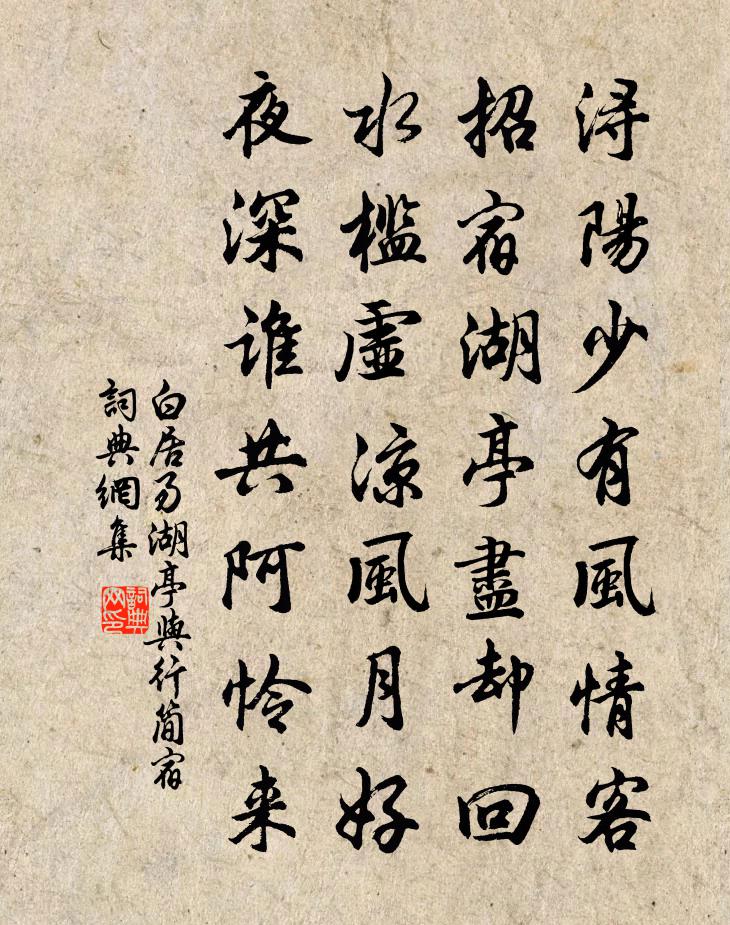 浔陽少有風情客
招宿湖亭盡却回
水檻虛涼風月好
夜深誰共阿怜来
白居易湖亭與行簡宿
詞典網集
詞典网印